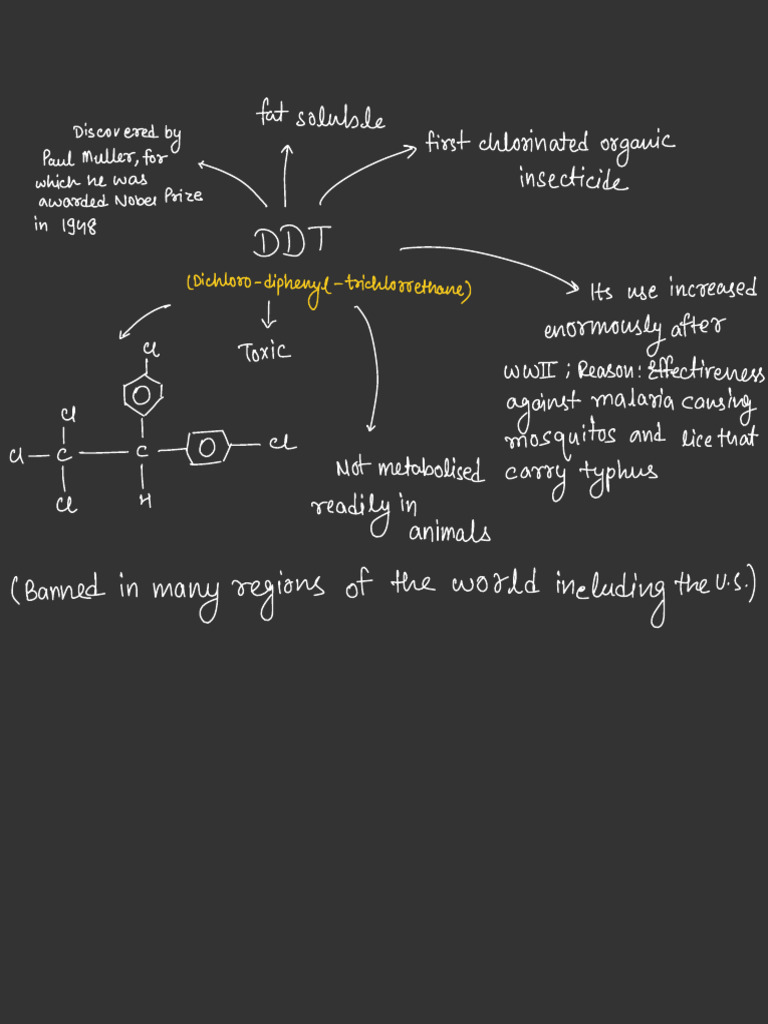 fat soluble
Discovered by
Paul Muller, for
which he was
awarded Nobel Prize
in 1948
first chlorinated organic
insecticide
DDT
(Dichloro-diphenyl-trichlorrethane)
Its use increased
enormously after
WWII ; Reason: Effectiveness
against malaria causing
mosquitos and lice that
carry typhus
Toxic
Cl
Cl
Cl — C — C — Cl
Cl
H
Not metabolised
readily in
animals
(Banned in many regions of the world including the U.S.)